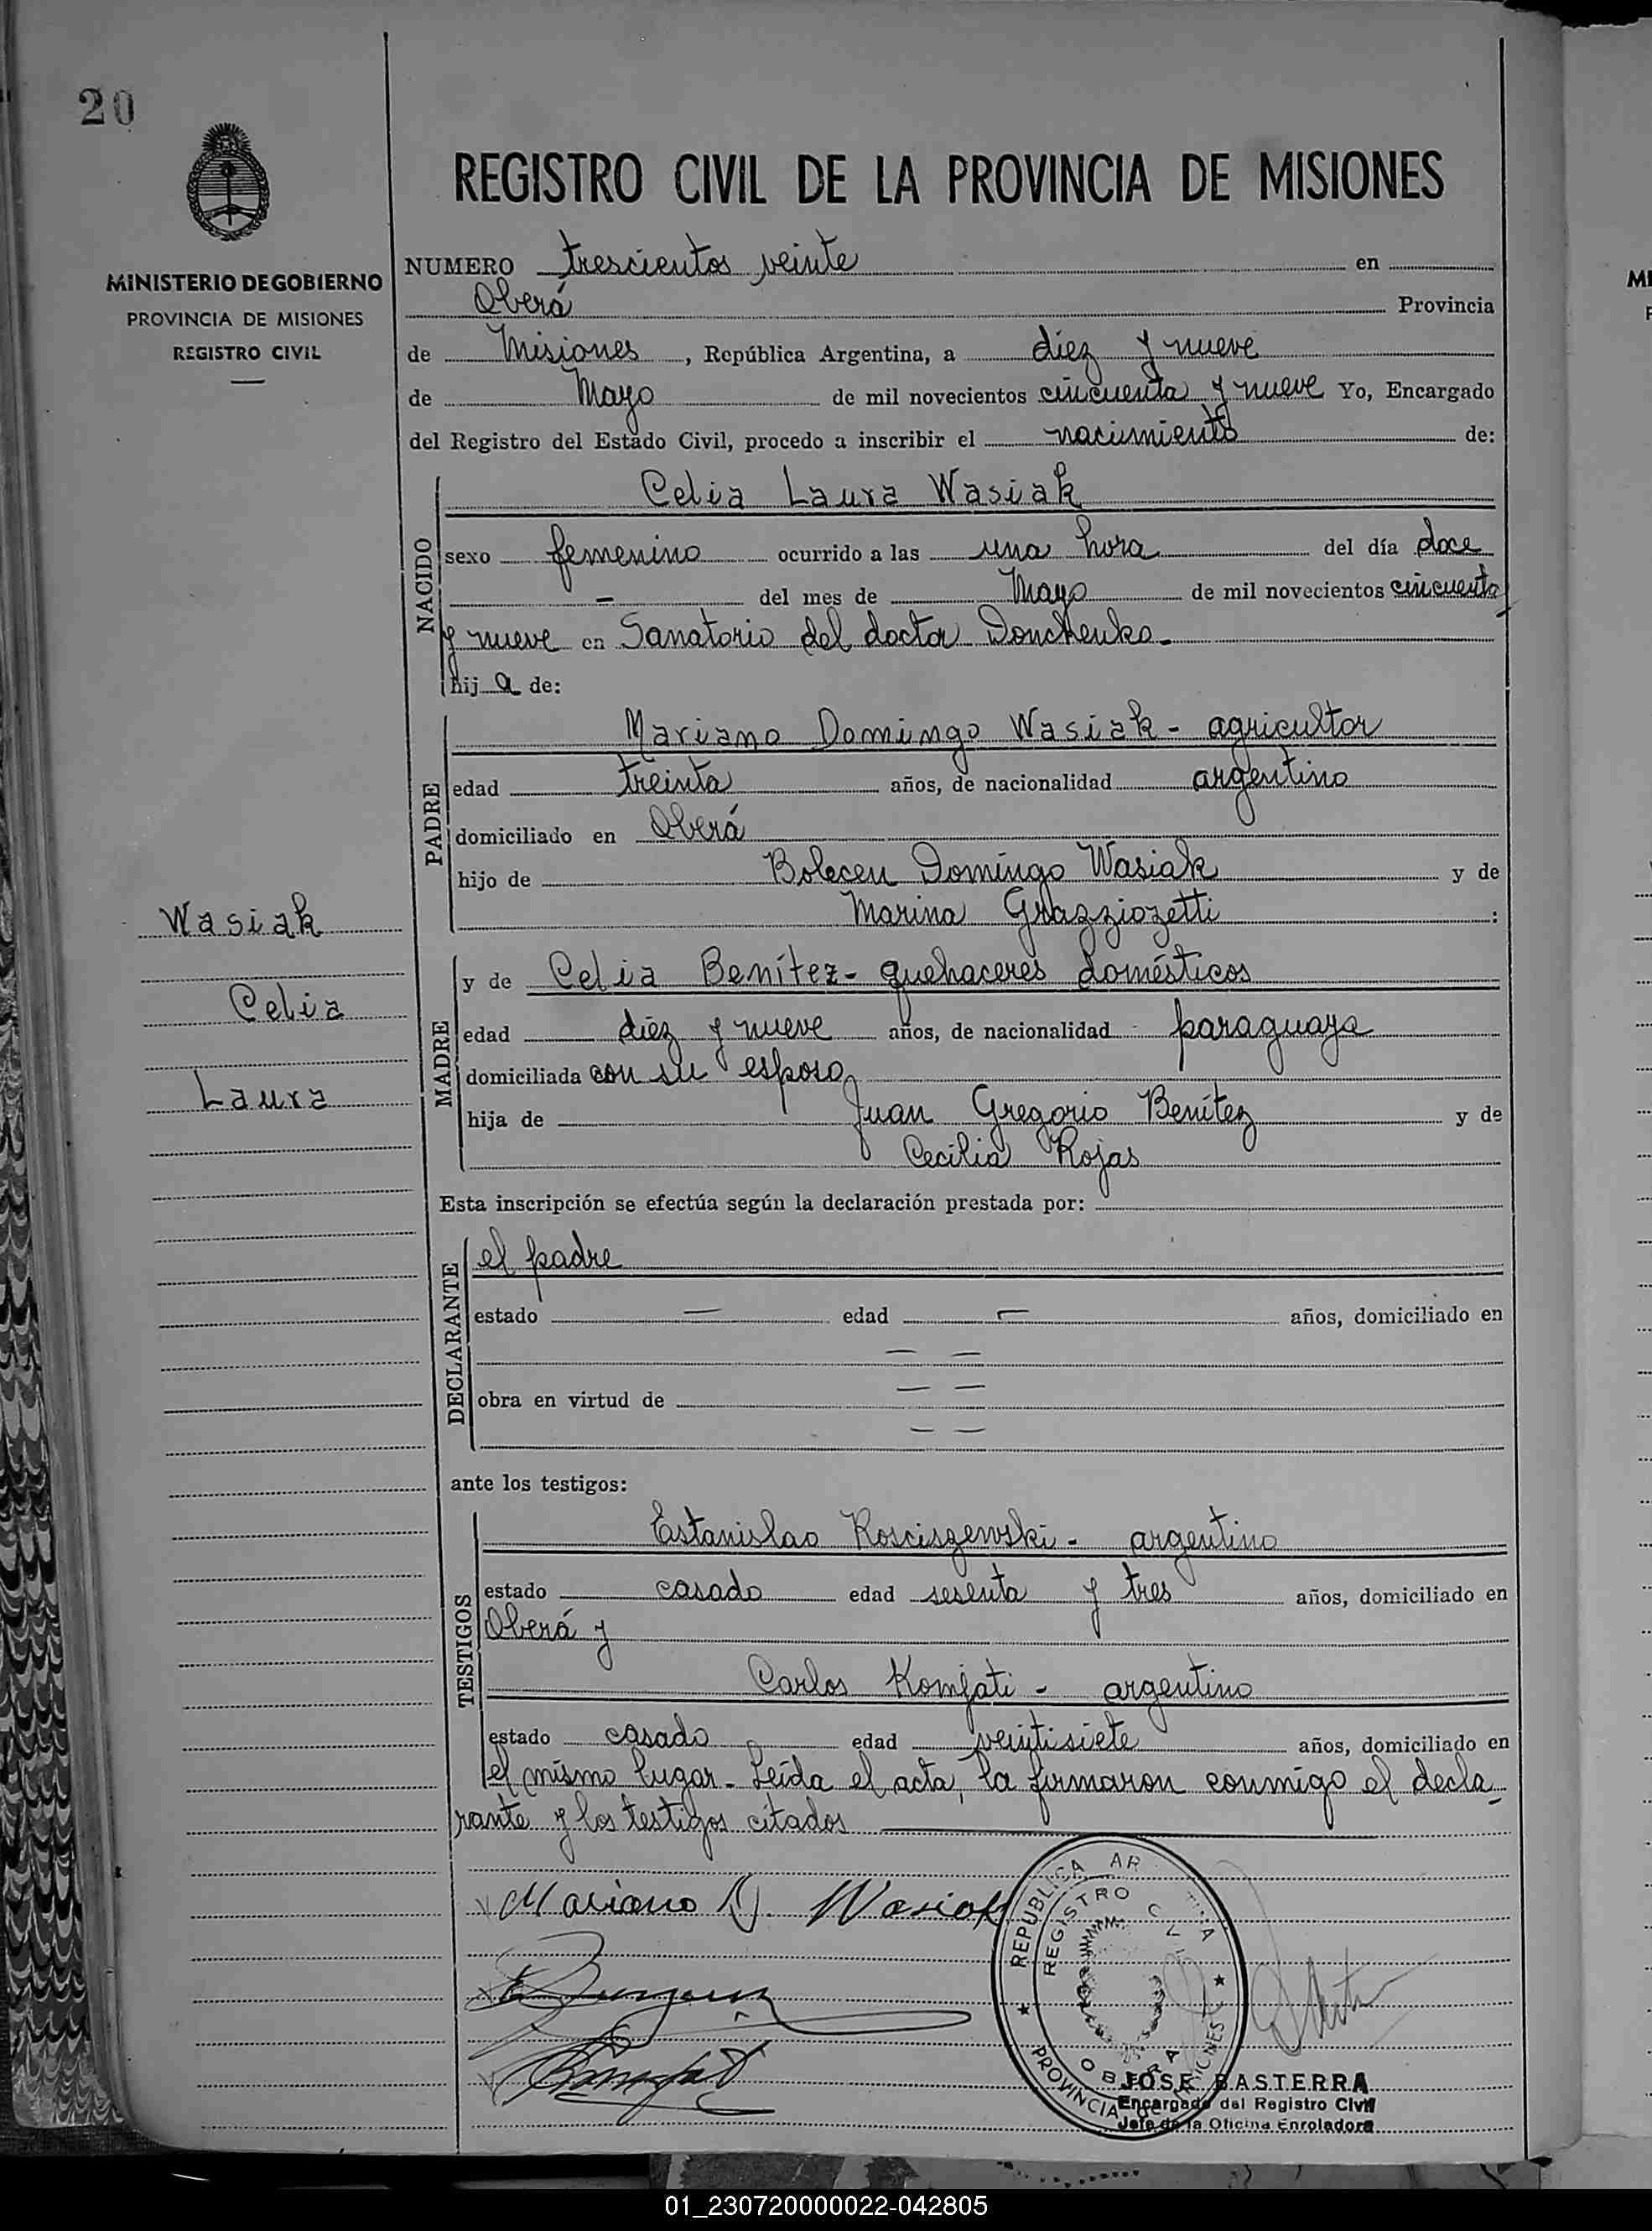 20
REGISTRO CIVIL DE LA PROVINCIA DE MISIONES
MINISTERIO DE GOBIERNO
PROVINCIA DE MISIONES
REGISTRO CIVIL
NUMERO trescientos veinte en
Oberá Provincia
de Misiones, República Argentina, a diez y nueve
de Mayo de mil novecientos cincuenta y nueve Yo, Encargado
del Registro del Estado Civil, procedo a inscribir el nacimiento de:
NACIDO
Celia Laura Wasiak
sexo femenino ocurrido a las una hora del día doce
— del mes de Mayo de mil novecientos cincuenta
y nueve en Sanatorio del doctor Donchenko-
hija de:
PADRE
Mariano Domingo Wasiak - agricultor
edad treinta años, de nacionalidad argentino
domiciliado en Oberá
hijo de Boleceu Domingo Wasiak y de
Marina Grazziozetti :
Wasiak
Celia
Laura
MADRE
y de Celia Benítez - quehaceres domésticos
edad diez y nueve años, de nacionalidad paraguaya
domiciliada con su esposo
hija de Juan Gregorio Benítez y de
Cecilia Rojas
Esta inscripción se efectúa según la declaración prestada por:
DECLARANTE
el padre
estado — edad — años, domiciliado en
— —
obra en virtud de — —
— —
ante los testigos:
TESTIGOS
Estanislao Kosciszewski - argentino
estado casado edad sesenta y tres años, domiciliado en
Oberá y
Carlos Komfati - argentino
estado casado edad veintisiete años, domiciliado en
el mismo lugar - Leída el acta, la firmaron conmigo el decla-
rante y los testigos citados
Mariano D. Wasiak
REPÚBLICA AR TINA
REGISTRO CIVIL
OBERA
PROVINCIA DE MISIONES
JOSE BASTERRA
Encargado del Registro Civil
Jefe de la Oficina Enroladora
01_230720000022-042805